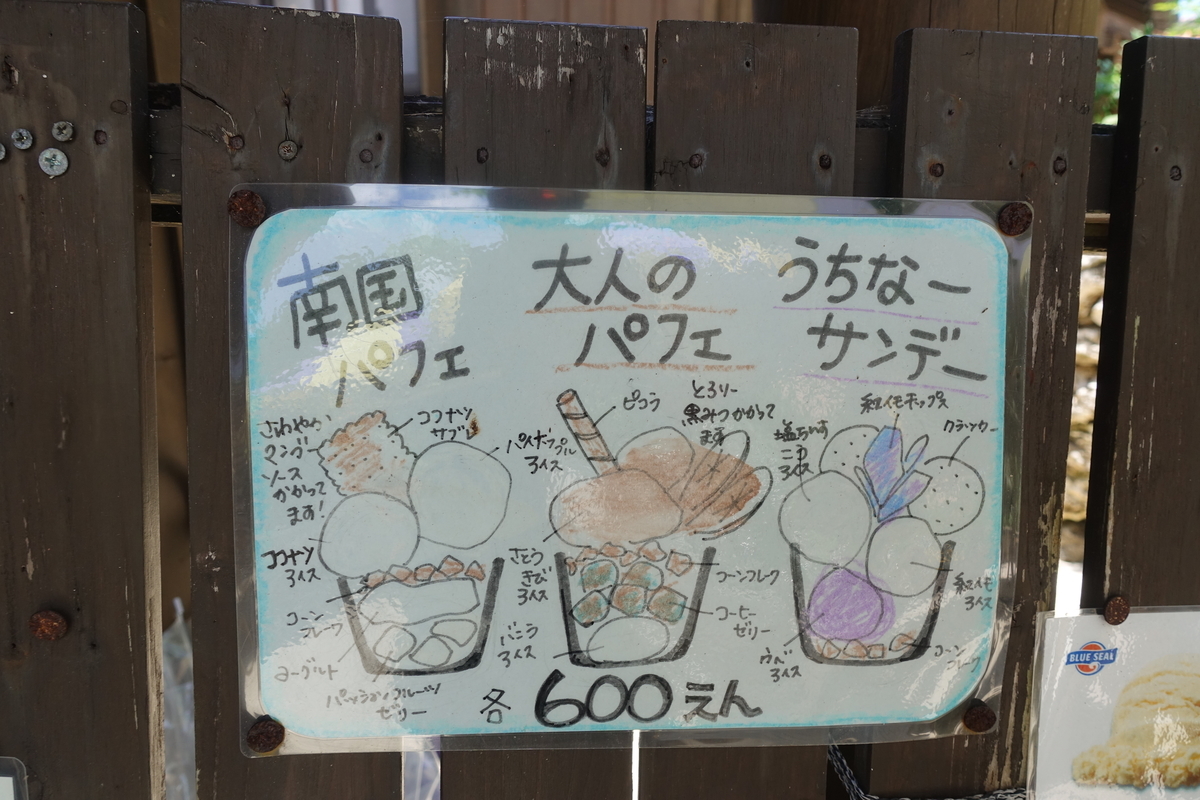 南国
パフェ
さわやか
マンゴー
ソース
かかって
ます!
ココナツ
サブレ
パイナップル
アイス
ココナツ
アイス
コーン
フレーク
ヨーグルト
パッションフルーツ
ゼリー
大人の
パフェ
ピコラ
とろりー
黒みつかかって
ます
さとう
きび
アイス
コーンフレーク
コーヒー
ゼリー
バニラ
アイス
うちなー
サンデー
紅イモチップス
クラッカー
塩ちんすこう
アイス
紅イモ
アイス
ウベ
アイス
コーン
フレーク
各 600えん
BLUE SEAL